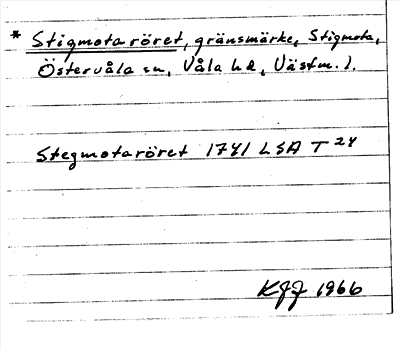 * Stigmotaröret, gränsmärke, Stigmota,
Östervåla sn, Våla hd, Västm. l.
Stegmotaröret 1741 LSA T 24
KJJ 1966